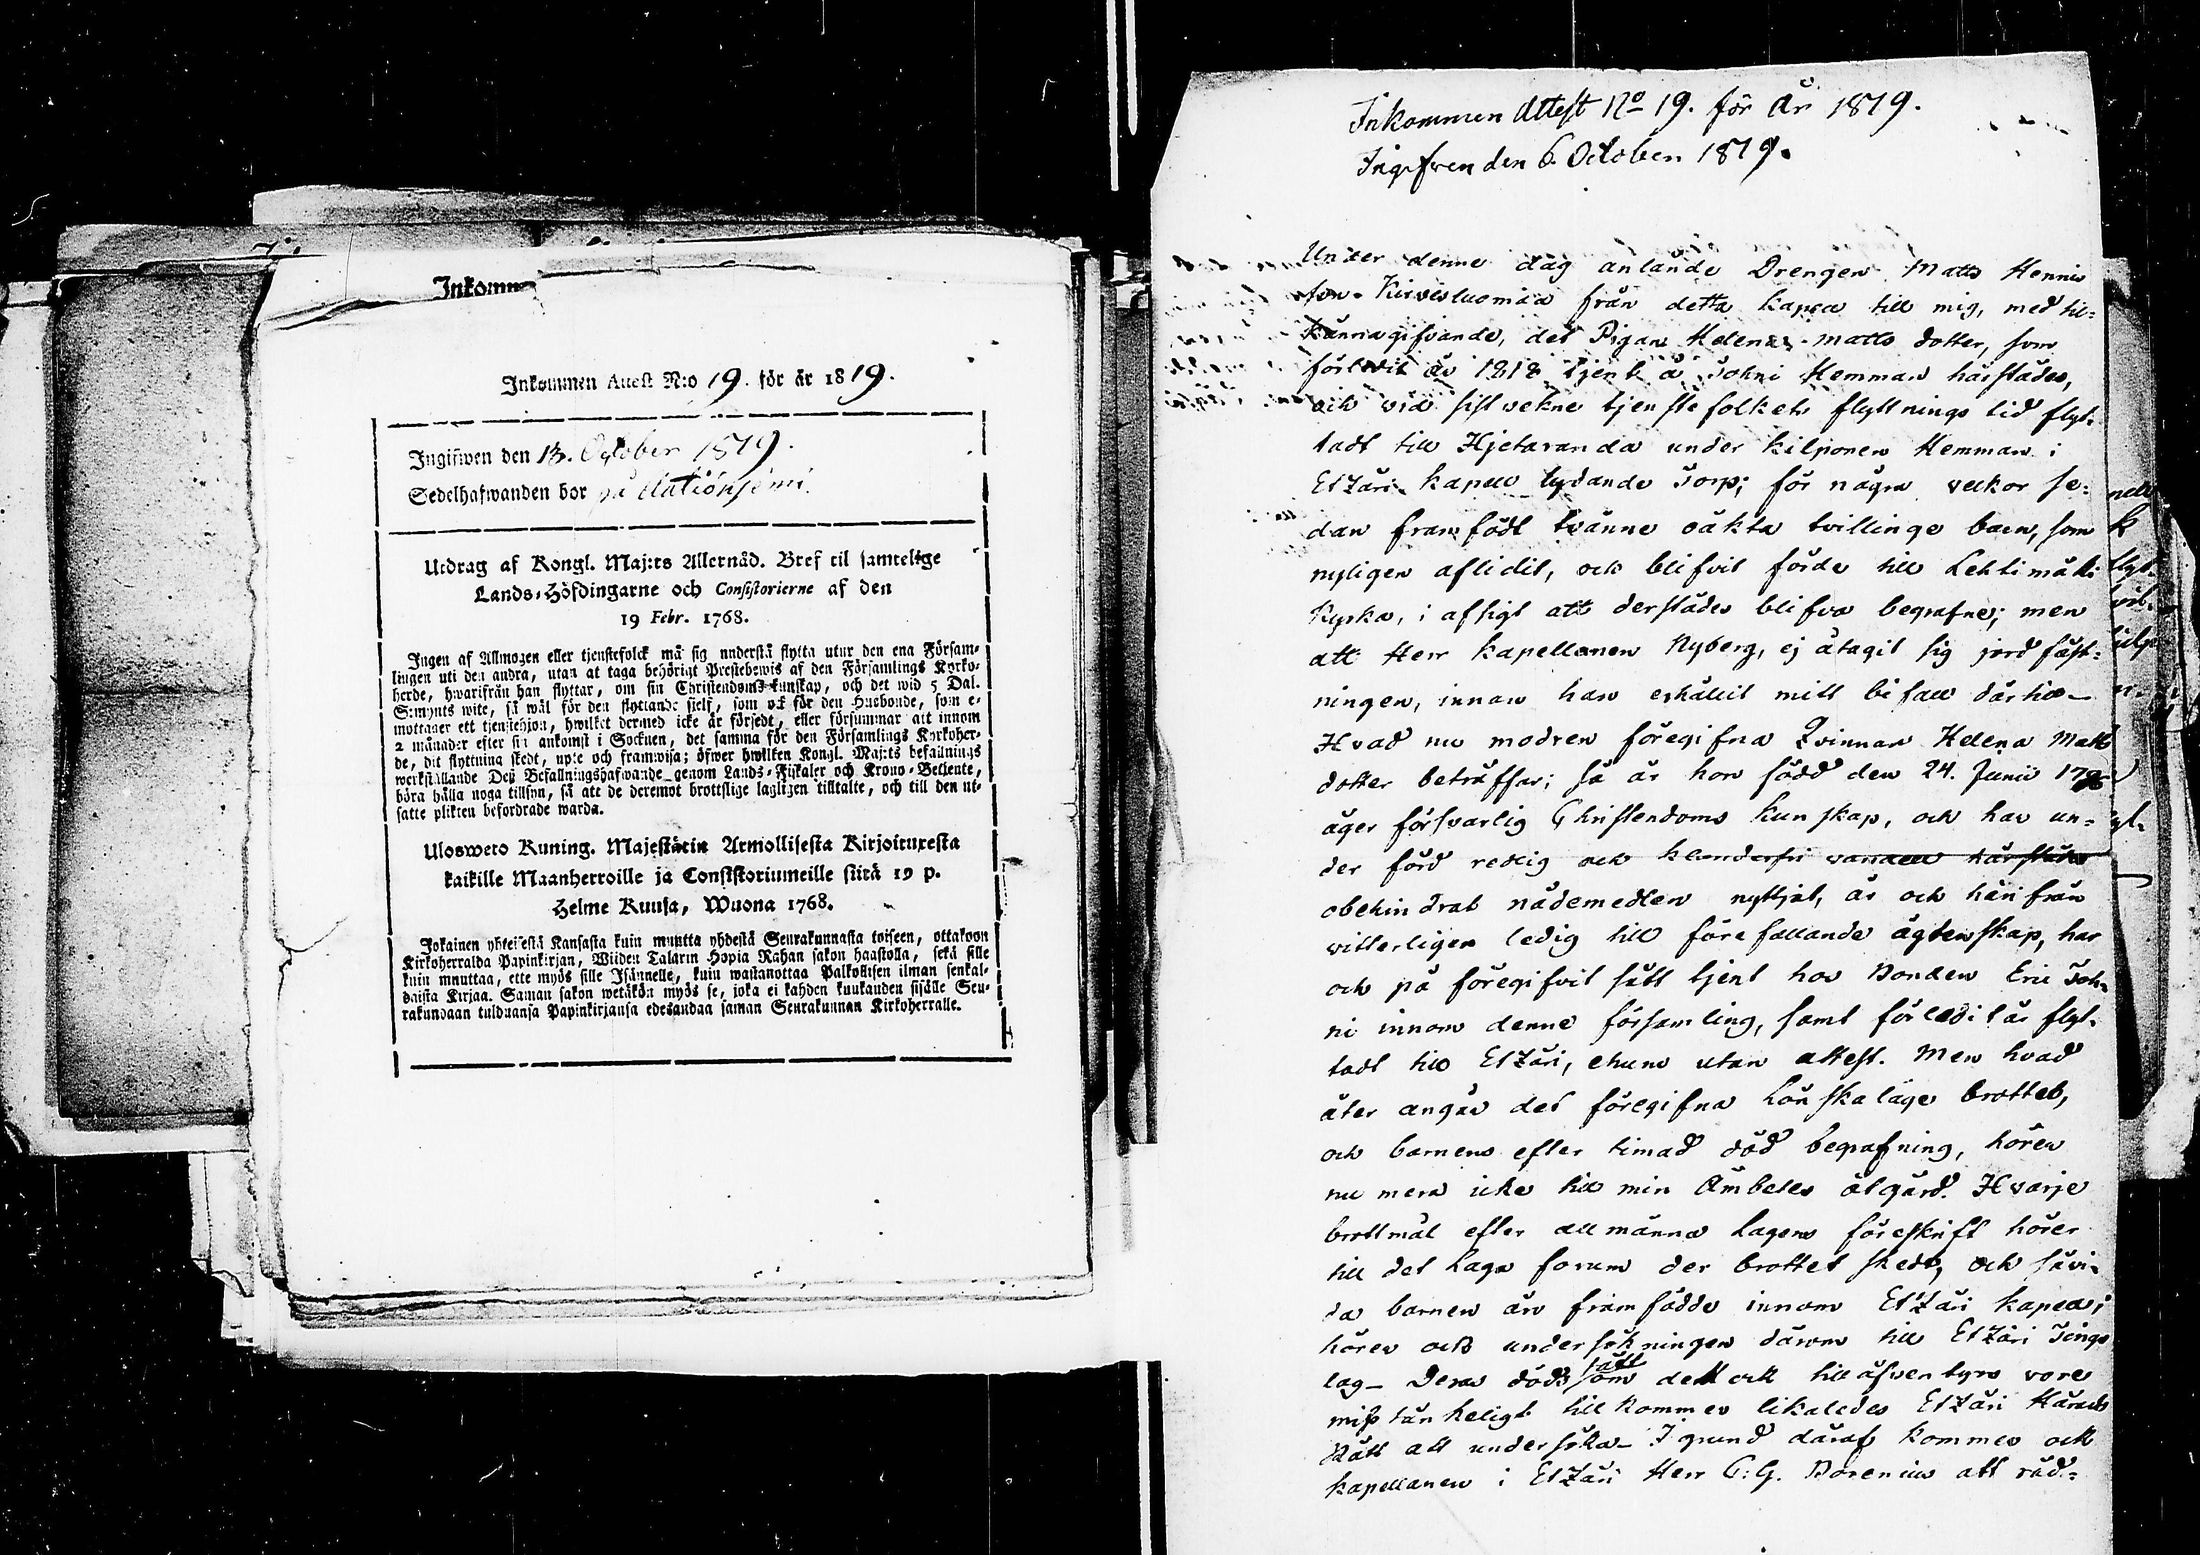 Inkomm
Inkommen Attest N:o 19. för år 1819.
Ingifwen den 13. October 1819.
Sedelhafwanden bor på
Utdrag af Kongl. Maj:ts Allernåd. Bref til samtelige
Lands-Höfdingarne och Consistorierne af den
19 Febr. 1768.
Ingen af Allmogen eller tjenstefolck må sig understå flytta utur den ena Försam-
lingen uti den andra, utan at taga behörigt Prestebewis af den Församlings Kyrko-
herde, hwarifrån han flyttar, om sin Christendoms-kunskap, och det wid 5 Dal.
S:mynts wite, så wäl för den flyttande sjelf, som ock för den Husbonde, som e-
mottager ett tjenstehjon, hwilket dermed icke är försedt, eller försummar att innom
2 månader efter sin ankomst i Socknen, det samma för den Församlings Kyrkoher-
de, dit flyttning skedt, upte och framwisa; öfwer hwilken Kongl. Maj:ts befallnings
werkställande Deß Befallningshafwande genom Lands-Fiskaler och Krono-Betjente,
böra hålla noga tillsyn, så att de deremot brottslige lagligen tilltalte, och till den ut-
satte plikten befordrade warda.
Ulosweto Kuning. Majestätin Armollisesta Kirjoituxesta
kaikille Maanherroille ja Consistoriumeille siitä 19 p.
Helme Kuusa, Wuona 1768.
Jokainen yhteisestä Kansasta kuin muutta yhdestä Seurakunnasta toiseen, ottakoon
Kirkoherralda Papinkirjan, Wiiden Talarin Hopia Rahan sakon haastolla, sekä sille
kuin muuttaa, ette myös sille Isännelle, kuin wastanottaa Palkollisen ilman senkal-
daista Kirjaa. Saman sakon wetäkön myös se, joka ei kahden kuukauden sisälle Seu-
rakundaan tulduansa Papinkirjansa edesandaa saman Seurakunnan Kirkoherralle.
Inkommen Attest No 19. för År 1819.
Ingifven den 6 October 1819.
Under denne dag anlände Drengen Matts Hennis
Kirvesluoma från detta kapell till mig, med til-
kännagifvande, det Pigan Helena Matts dotter, som
förledit år 1818 tjent å Tokni Hemman härstädes,
och vid sist vekne tjenstefolkets flyttnings tid flyt-
tadt till Hjetaranda under Kilponen Hemman i
Etzäri kapell lydande Torp; för några veckor se-
dan framfödt tvänne oäkta tvillinge barn, som
nyligen aflidit, och blifvit förde till Lehtimäki
Kyrka, i afsigt att derstädes blifva begrafne; men
att Herr Kapellanen Nyberg, ej åtagit sig jordfäst-
ningen, innan han erhållit mitt bifall därtill–
Hvad nu modren föregifna Qvinnan Helena Matts
dotter beträffar; så är hon född den 24. Junii
äger försvarlig Christendoms kunskap, och har un-
der förd redlig och klanderfri vandell härstädes
obehindrat nådemedlen nyttjat, är och härifrån
vitterligen ledig till förefallande ägtenskap, har
och på föregifvit sätt tjent hos Bonden Eric Tok-
ni innom denne församling, samt förledit år flyt-
tadt till Etzäri, ehuru utan attest. Men hvad
åter angår det föregifna Lönskaläge brottet,
och barnens efter timad död begrafning, hörer
nu mera icke till min Ämbetes åtgärd. Hvarje
brottmål efter allmänna Lagens föreskrift hörer
till det Laga forum der brottet skedt, och såvi-
da barnen äro framfödde innom Etzäri kapell;
hörer och undersökningen därom till Etzäri Tings
lag– Deras dödssätt som dett ock till äfventyrs vore
mißtänkeligt tillkommer likaledes Etzäri Härads
Rätt att undersöka– I grund däraf kommer och
kapellanen i Etzäri Herr C:G. Borenius att råd-